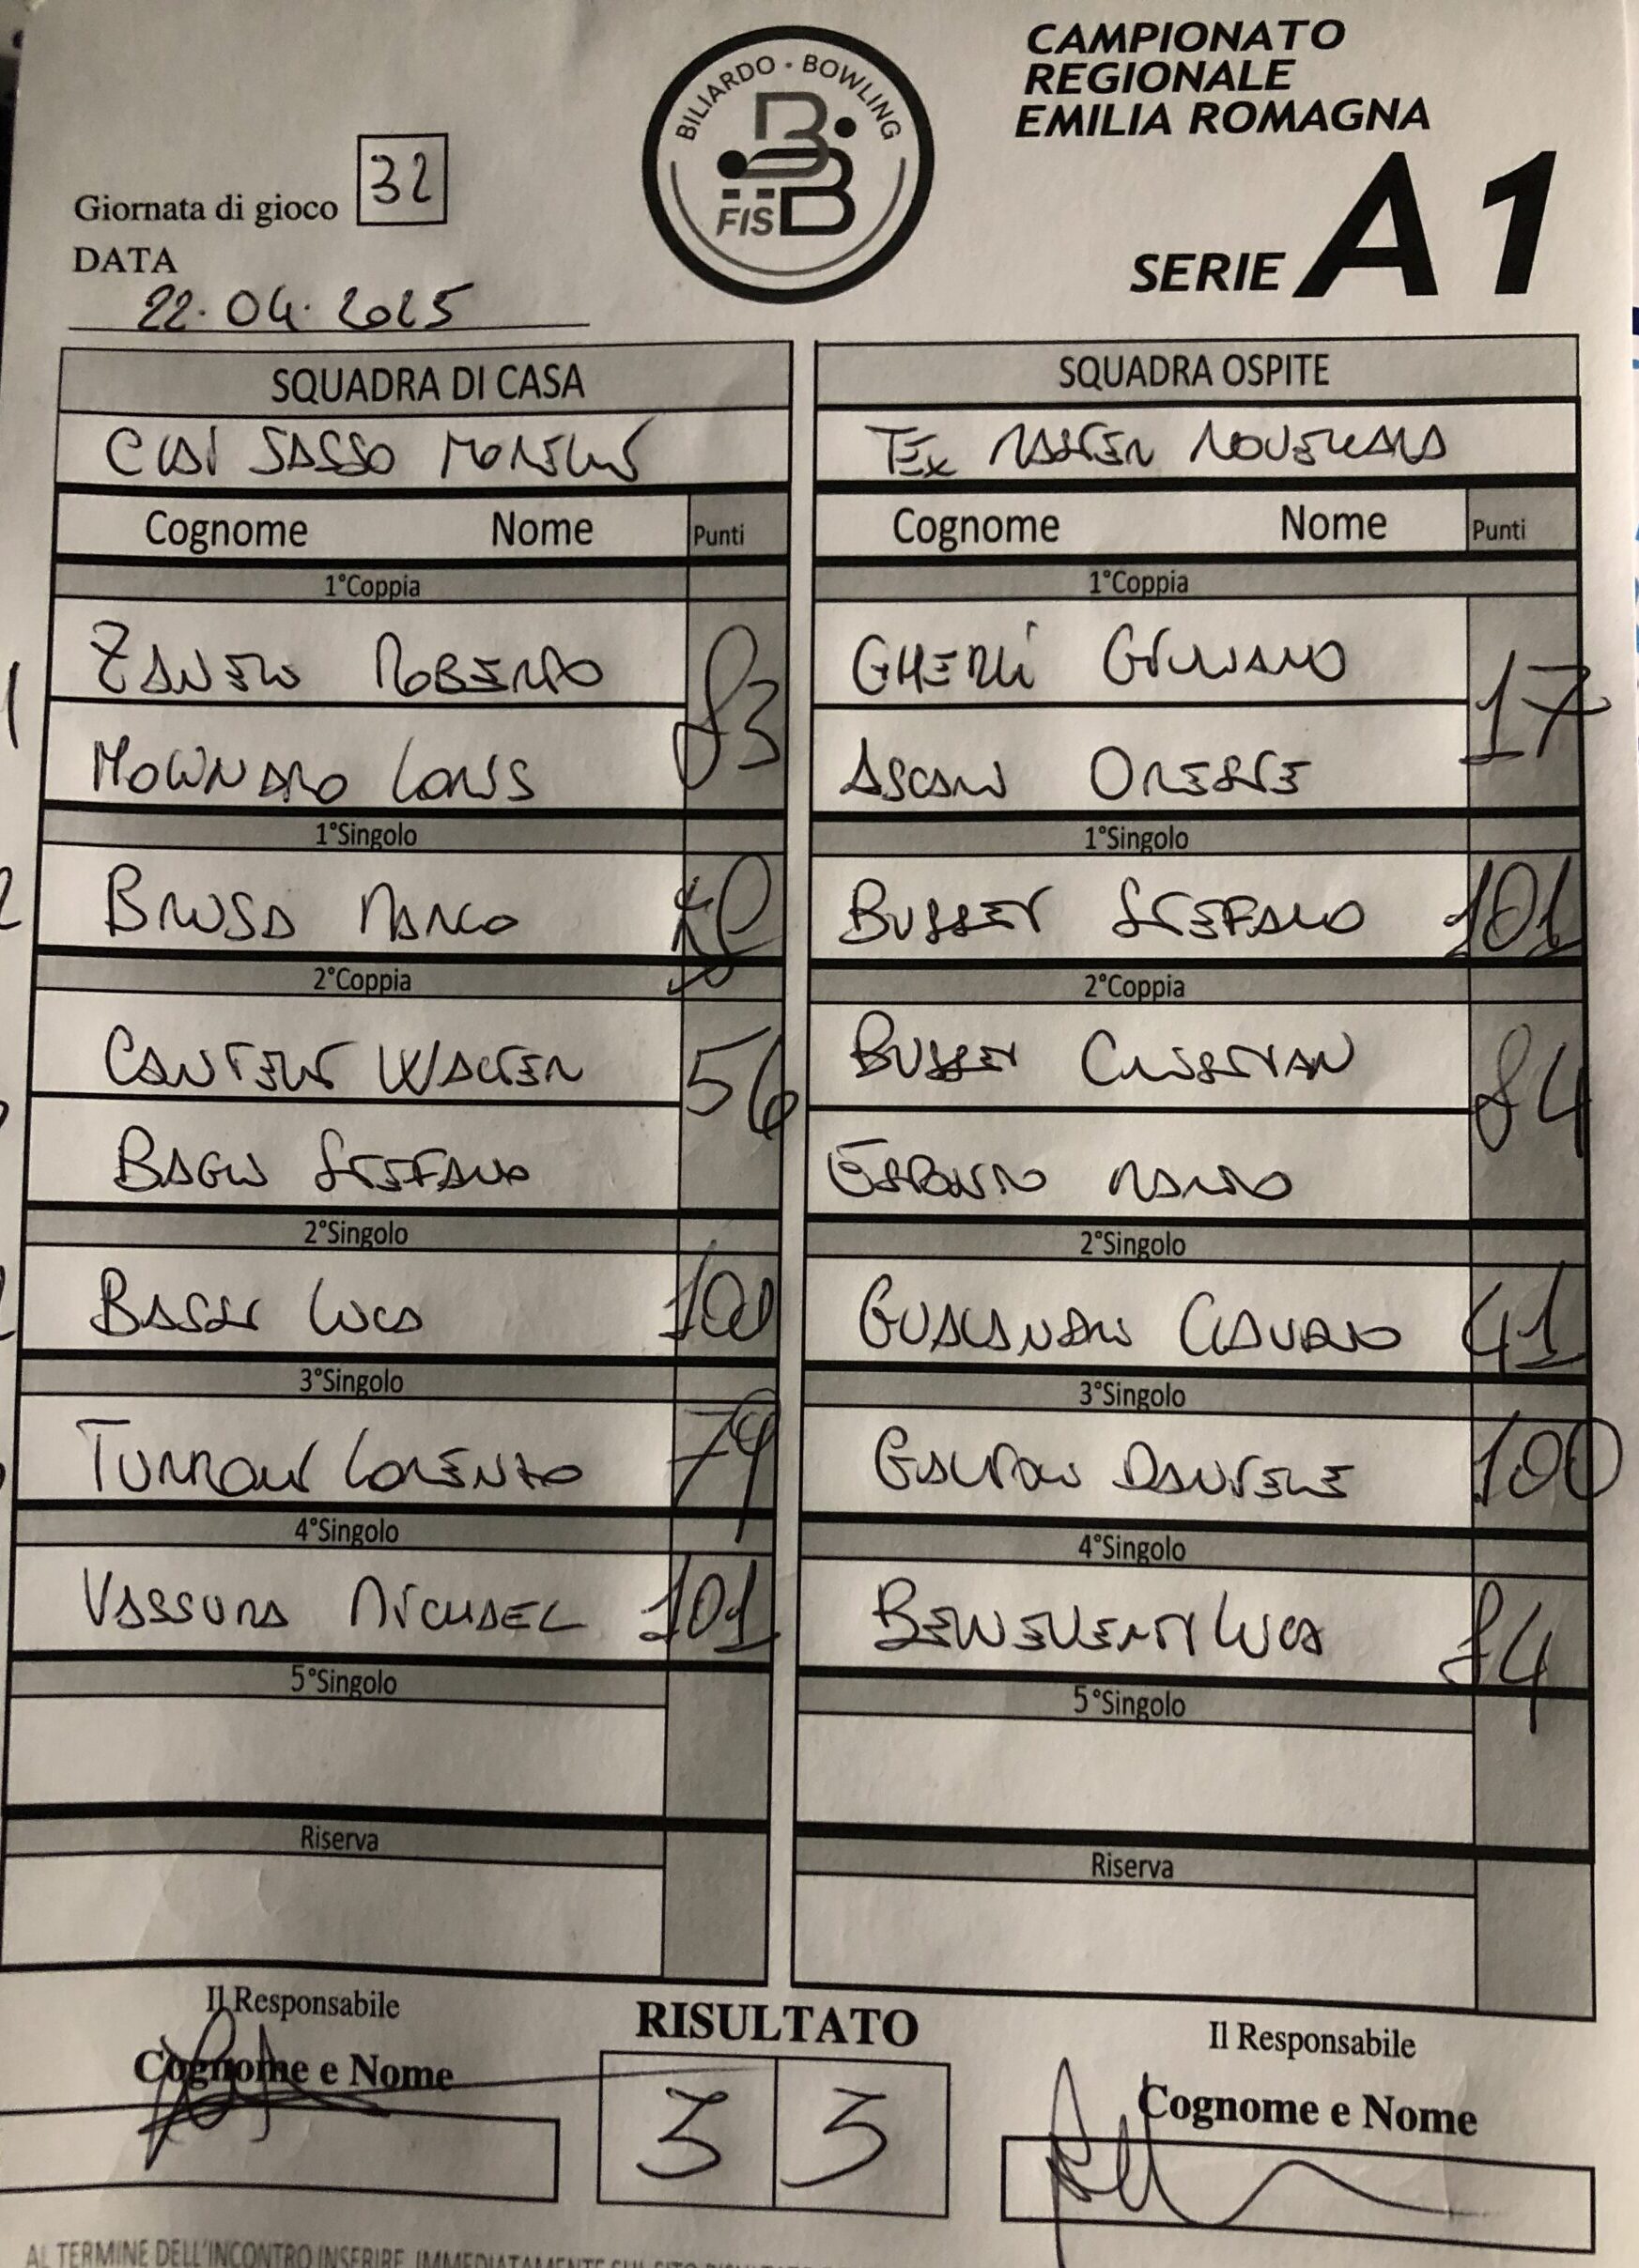 CAMPIONATO
REGIONALE
EMILIA ROMAGNA
SERIE A1
BILIARDO · BOWLING
FISBB
Giornata di gioco 32
DATA
22.04.2025
SQUADRA DI CASA
SASSO
Cognome Nome Punti
1°Coppia
ZANETTI ROBERTO 83
MOLINARO LORIS
1°Singolo
BRUSA MARCO
2°Coppia
WALTER 56
BAGLI STEFANO
2°Singolo
BASSI LUCA 100
3°Singolo
TURRONI LORENZO 79
4°Singolo
VASSURA MICHAEL 101
5°Singolo
Riserva
Il Responsabile
Cognome e Nome
SQUADRA OSPITE
TEX MASTER NOVELLARA
Cognome Nome Punti
1°Coppia
GHERLI GIULIANO 17
ASCARI ORESTE
1°Singolo
STEFANO 101
2°Coppia
CRISTIAN 84
ESPOSITO MARIO
2°Singolo
GUALANDRI CLAUDIO 41
3°Singolo
DANIELE 100
4°Singolo
BENEVENTI LUCA 84
5°Singolo
Riserva
RISULTATO
3 3
Il Responsabile
Cognome e Nome
AL TERMINE DELL'INCONTRO INSERIRE IMMEDIATAMENTE SUL SITO